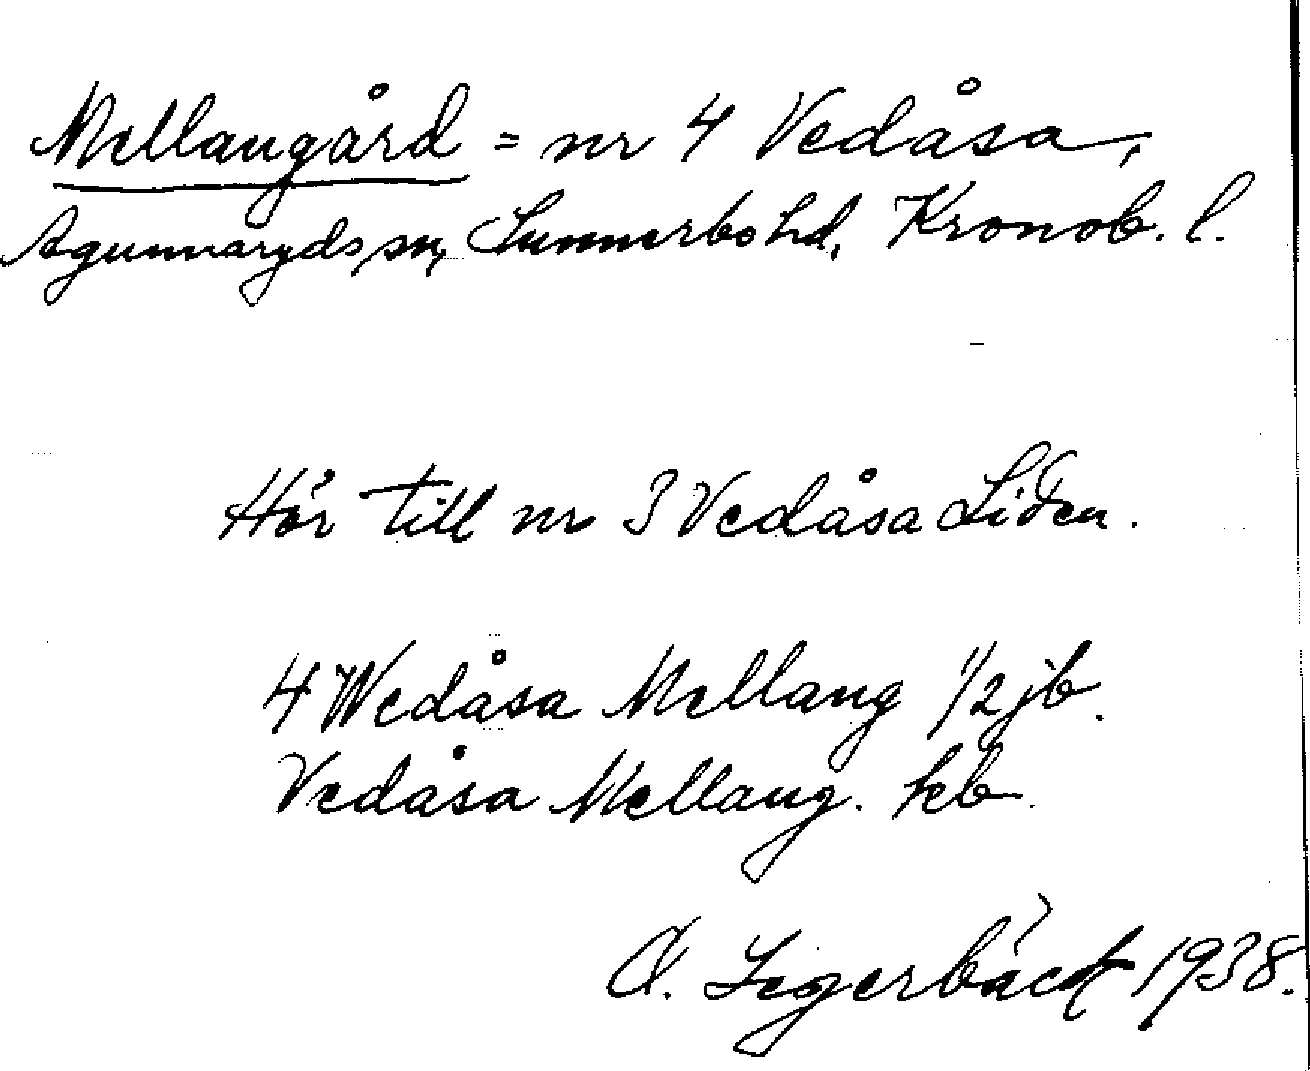 Mellangård = nr 4 Vedåsa,
Agunnaryds sn, Sunnerbo hd, Kronob. l.
Hör till nr 3 Vedåsa Liden.
4 Wedåsa Mellang 1/2 jb.
Vedåsa Mellang. kb.
1938.